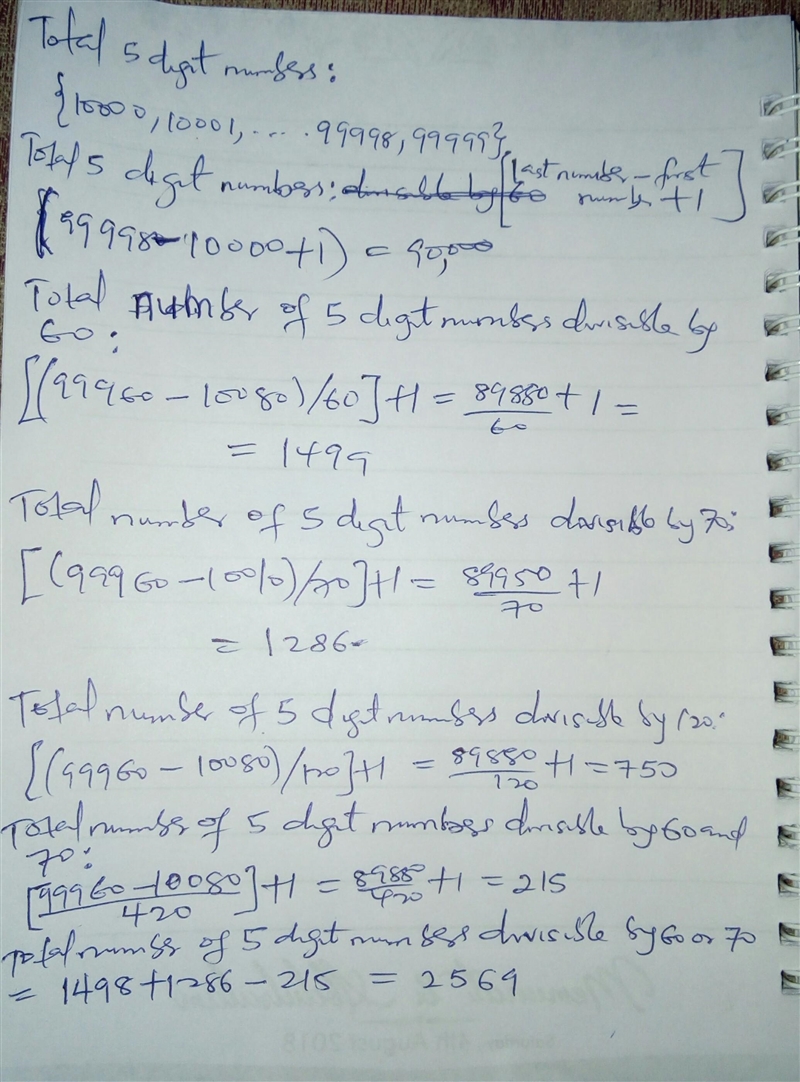 Total 5 digit numbers:
{10000, 10001, .... 99998, 99999}
Total 5 digit numbers: divisible by 60 [last number - first number + 1]
(99998-10000+1) = 90,000
Total number of 5 digit numbers divisible by
60:
[(99960 - 10080)/60]+1 = 89880/60 + 1 =
= 1499
Total number of 5 digit numbers divisible by 70:
[(99960 - 10010)/70]+1 = 89950/70 + 1
= 1286
Total number of 5 digit numbers divisible by 120:
[(99960 - 10080)/120]+1 = 89880/120 + 1 = 750
Total number of 5 digit numbers divisible by 60 and
70:
[99960 - 10080/420]+1 = 89880/420 + 1 = 215
Total number of 5 digit numbers divisible by 60 or 70
= 1498 + 1286 - 215 = 2569